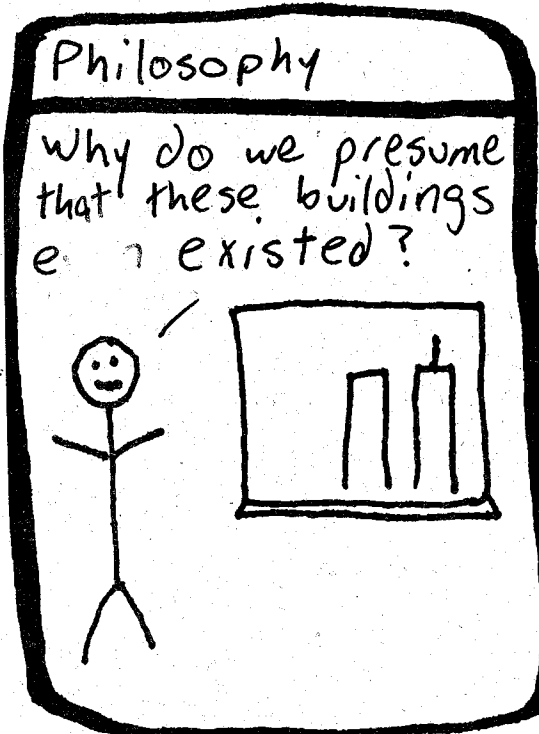 Philosophy
Why do we presume
that these buildings
existed?